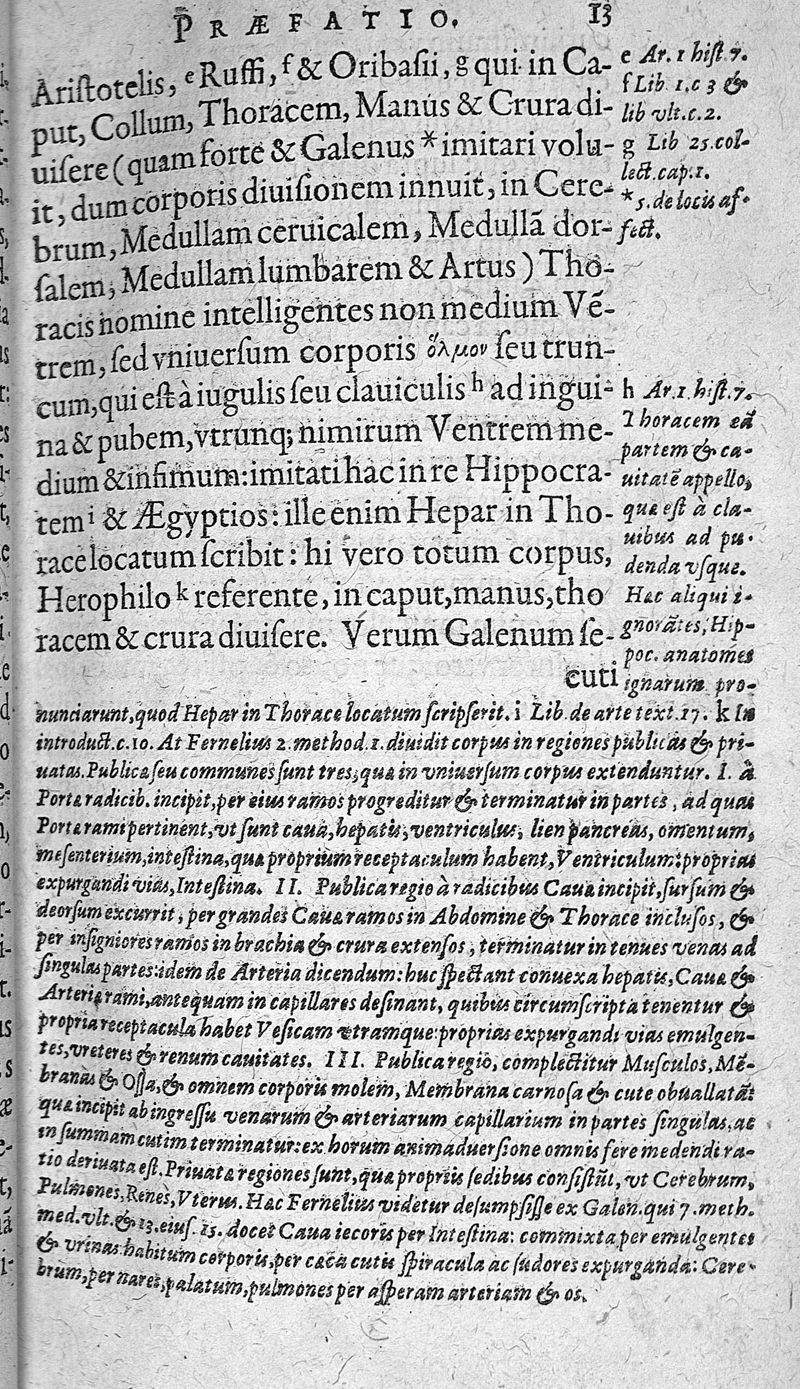 PRÆFATIO. 13
Ariſtotelis, e Ruffi, f & Oribaſii, g qui in Ca-
put, Collum, Thoracem, Manus & Crura di-
uiſere (quam forte & Galenus * imitari volu-
it, dum corporis diuiſionem innuit, in Cere-
brum, Medullam ceruicalem, Medullā dor-
ſalem, Medullam lumbarem & Artus) Tho-
racis nomine intelligentes non medium Vē-
trem, ſed vniuerſum corporis ὅλμον ſeu trun-
cum, qui eſt à iugulis ſeu clauiculis h ad ingui-
na & pubem, vtrunq; nimirum Ventrem me-
dium & infimum: imitati hac in re Hippocra-
tem i & Ægyptios: ille enim Hepar in Tho-
race locatum ſcribit: hi vero totum corpus,
Herophilo k referente, in caput, manus, tho
racem & crura diuiſere. Verum Galenum ſe-
cuti
e Ar. 1 hiſt. 7.
f Lib 1. c 3 &
lib vlt. c. 2.
g Lib 25. col-
lect. cap. 1.
* 5. de locis af-
fect.
h Ar. 1. hiſt. 7.
Thoracem eā
partem & ca-
uitatē appello,
quæ eſt à cla-
uibus ad pu-
denda vſque.
Hæc aliqui i-
gnorātes, Hip-
poc. anatomes
ignarum pro-
nunciarunt, quod Hepar in Thorace locatum ſcripſerit. i Lib. de arte text. 17. k In
introduct. c. 10. At Fernelius 2. method. 1. diuidit corpus in regiones publicas & pri-
uatas. Publicæ ſeu communes ſunt tres, quæ in vniuerſum corpus extenduntur. I. à
Portæ radicib. incipit, per eius ramos progreditur & terminatur in partes, ad quas
Portæ rami pertinent, vt ſunt caua, hepatis, ventriculus, lien pancreas, omentum,
meſenterium, inteſtina, quæ proprium receptaculum habent, Ventriculum: proprias
expurgandi vias, Inteſtina. II. Publica regio à radicibus Cauæ incipit, ſurſum &
deorſum excurrit, per grandes Cauæ ramos in Abdomine & Thorace incluſos, &
per inſigniores ramos in brachia & crura extenſos, terminatur in tenues venas ad
ſingulas partes: idem de Arteria dicendum: huc ſpectant conuexa hepatis, Cauæ &
Arteriæ rami, antequam in capillares deſinant, quibus circumſcripta tenentur &
propria receptacula habet Veſicam vtramque: proprias expurgandi vias emulgen-
tes, vreteres & renum cauitates. III. Publica regio, complectitur Muſculos, Mē-
branas & Oſſa, & omnem corporis molem, Membrana carnoſa & cute obuallatā:
quæ incipit ab ingreſſu venarum & arteriarum capillarium in partes ſingulas, ac
in ſummam cutim terminatur: ex horum animaduerſione omnis fere medendi ra-
tio deriuata eſt. Priuatæ regiones ſunt, quæ propriis ſedibus conſiſtūt, vt Cerebrum,
Pulmones, Renes, Vterus. Hæc Fernelius videtur deſumpſiſſe ex Galen. qui 7. meth.
med. vlt. & 13. eiuſ. 15. docet Caua iecoris per Inteſtina: commixta per emulgentes
& vrinas: habitum corporis, per cæca cutis ſpiracula ac ſudores expurganda: Cere-
brum, per nares, palatum, pulmones per aſperam arteriam & os.